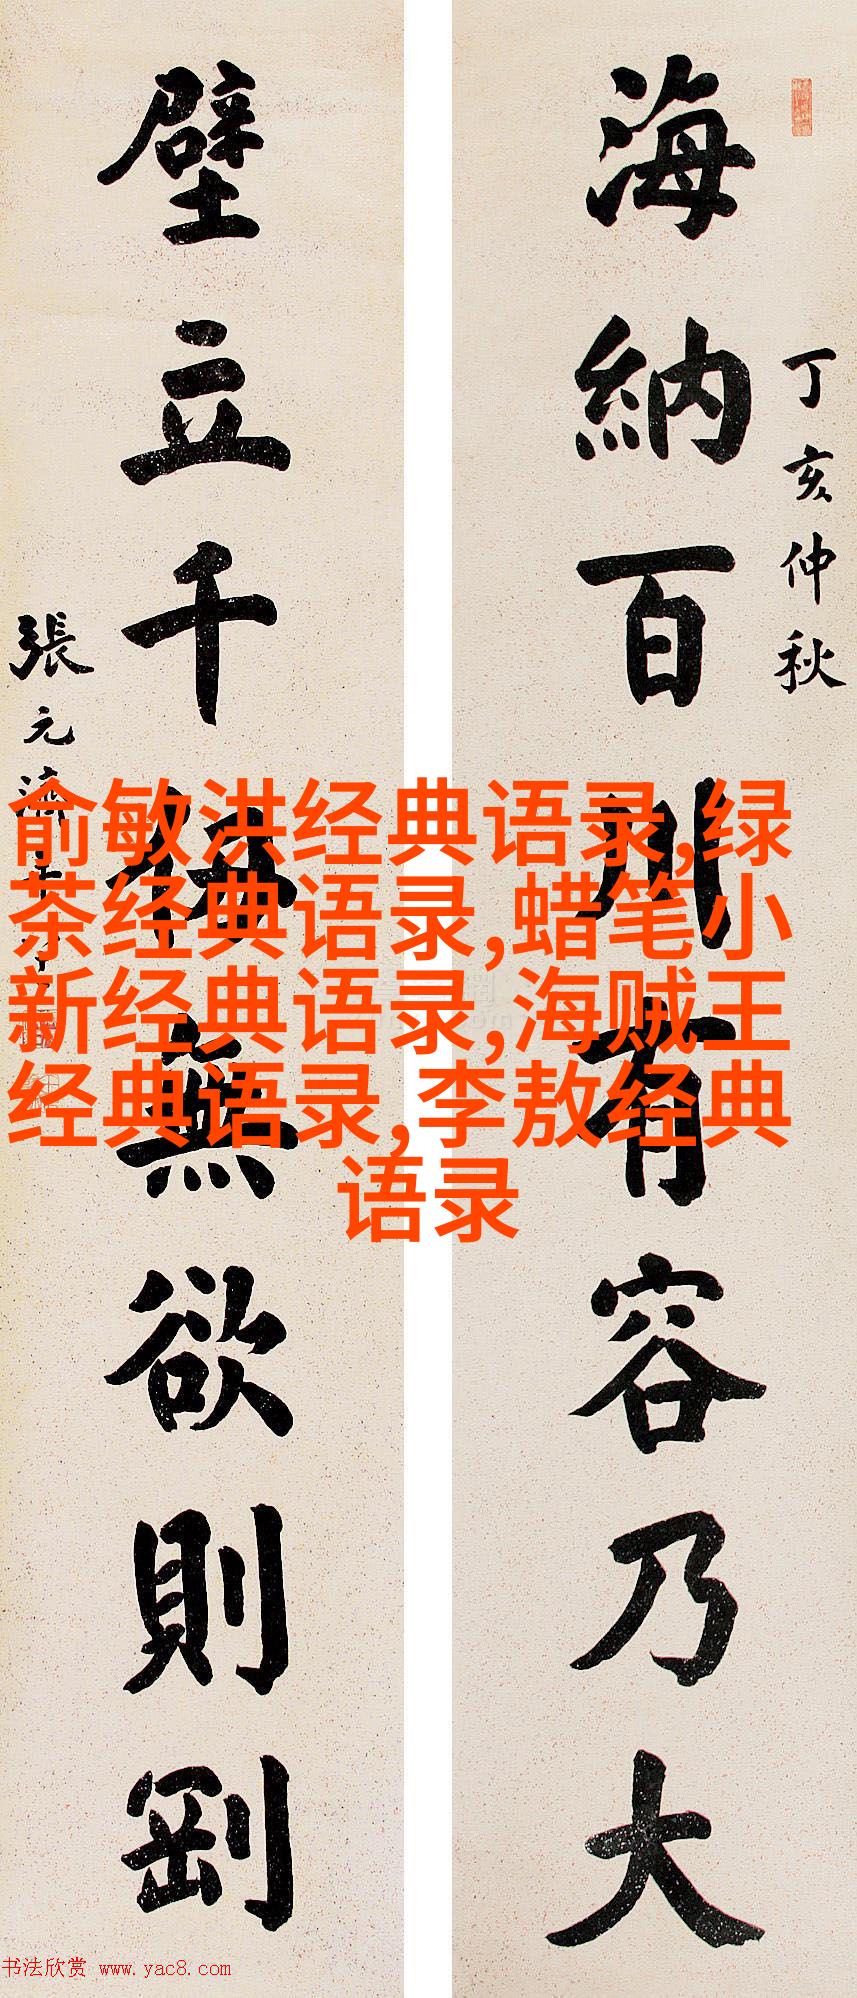 海納百川有容乃大
丁亥仲秋
壁立千仞無欲則剛
張元濟
俞敏洪经典语录,绿
茶经典语录,蜡笔小
新经典语录,海贼王
经典语录,李敖经典
语录
书法欣赏 www.yac8.com